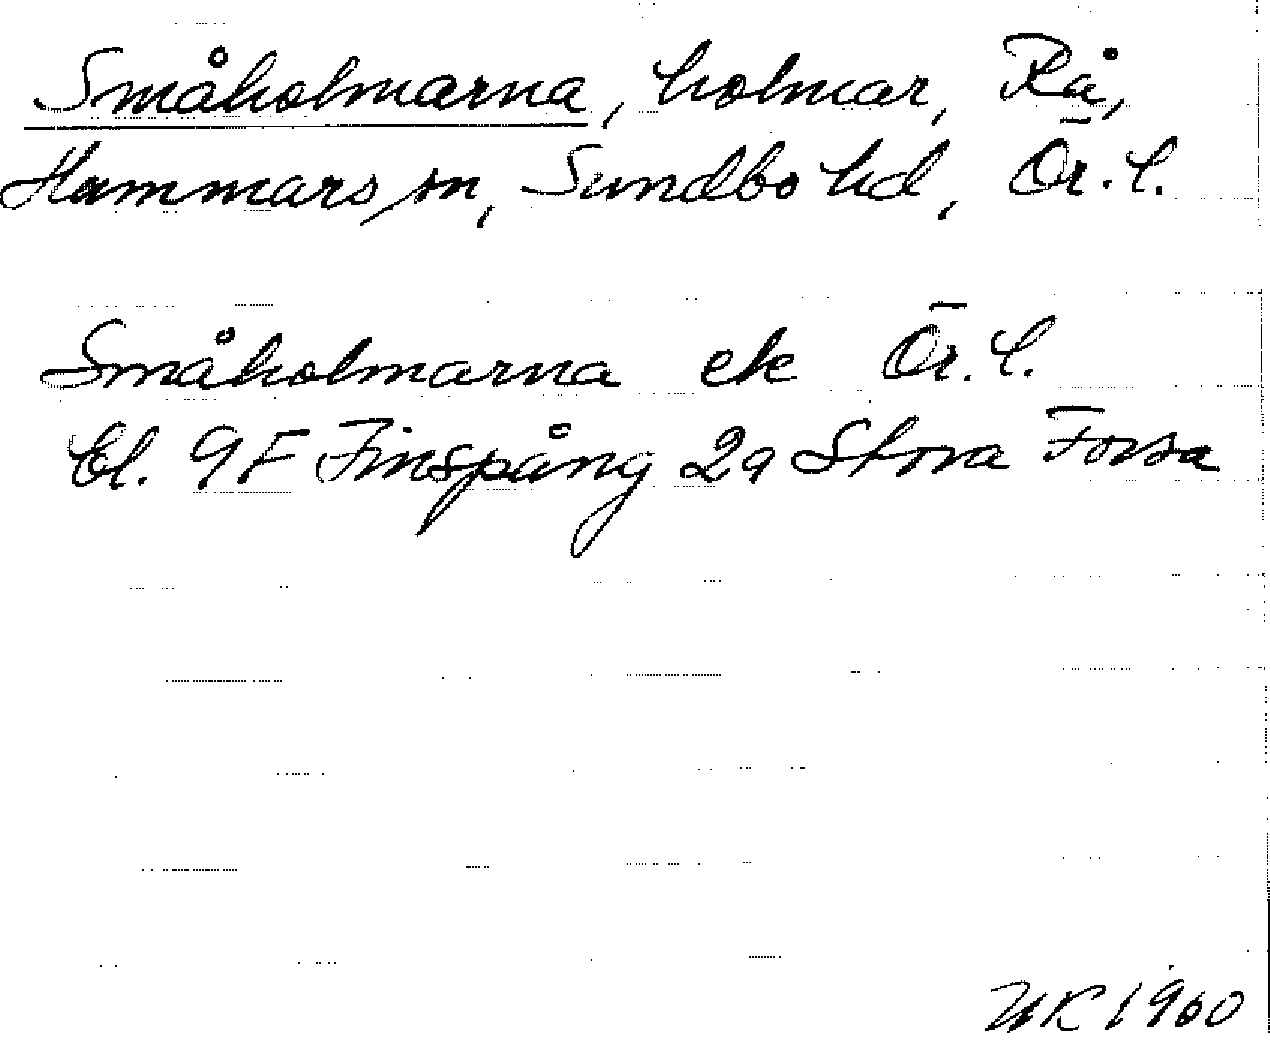 Småholmarna, holmar, Rå,
Hammarsjön, Sundbo hd, Ör. l.
Småholmarna ek Ör. l.
Bl. 9F Finspång 2a Stora Forsa
UK 1960